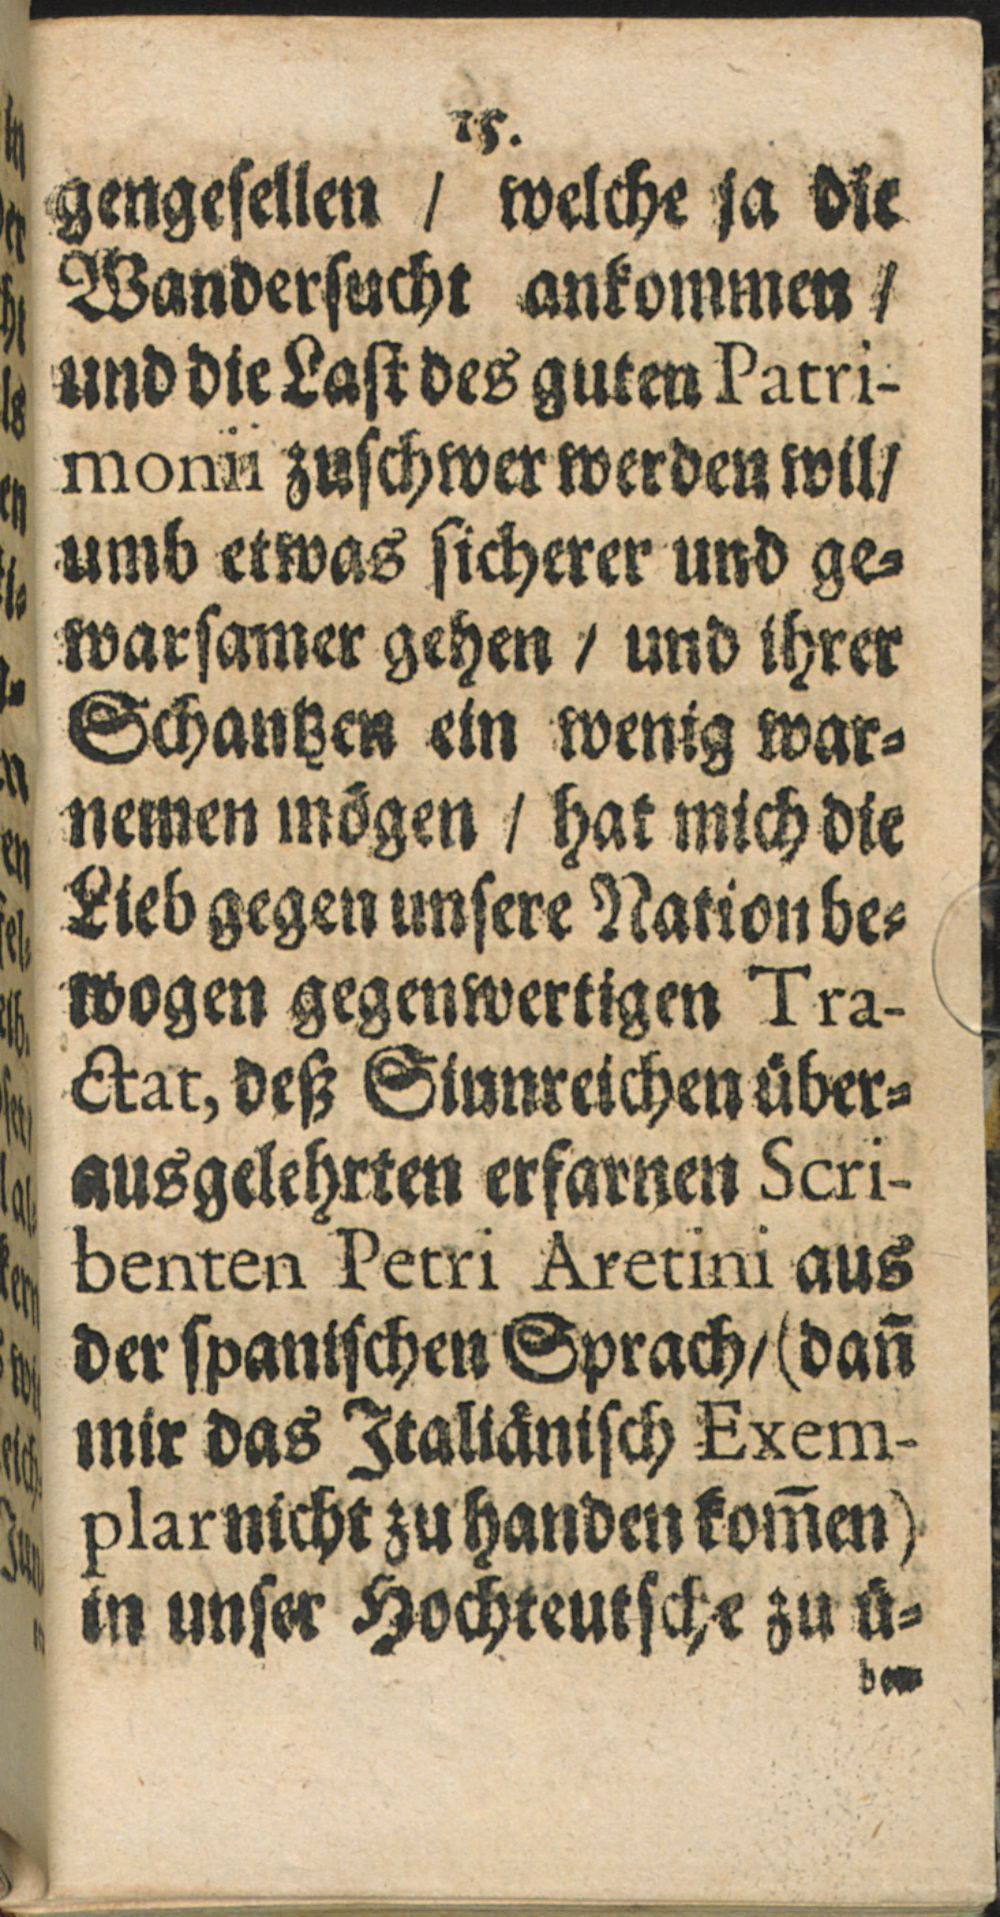 15.
gengesellen / welche ja die
Wandersucht ankommen /
und die Last des guten Patri-
monii zuschwer werden wil/
umb etwas sicherer und ge-
warsamer gehen / und ihrer
Schantzen ein wenig war-
nemen mögen / hat mich die
Lieb gegen unsere Nation be-
wogen gegenwertigen Tra-
ctat, deß Sinnreichen über-
ausgelehrten erfarnen Scri-
benten Petri Aretini aus
der spanischen Sprach/(dañ
mir das Italiänisch Exem-
plar nicht zu handen kom̃en)
in unser Hochteutsche zu ü-